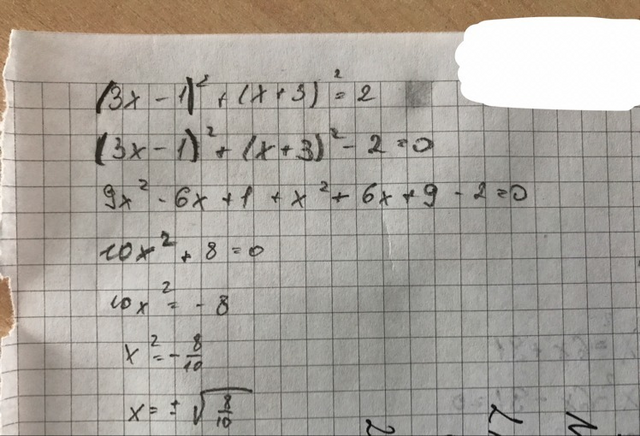 (3x - 1)² + (x + 3)² = 2
(3x - 1)² + (x + 3)² - 2 = 0
9x² - 6x + 1 + x² + 6x + 9 - 2 = 0
10x² + 8 = 0
10x² = - 8
x² = - 8/10
x = ± √(8/10)